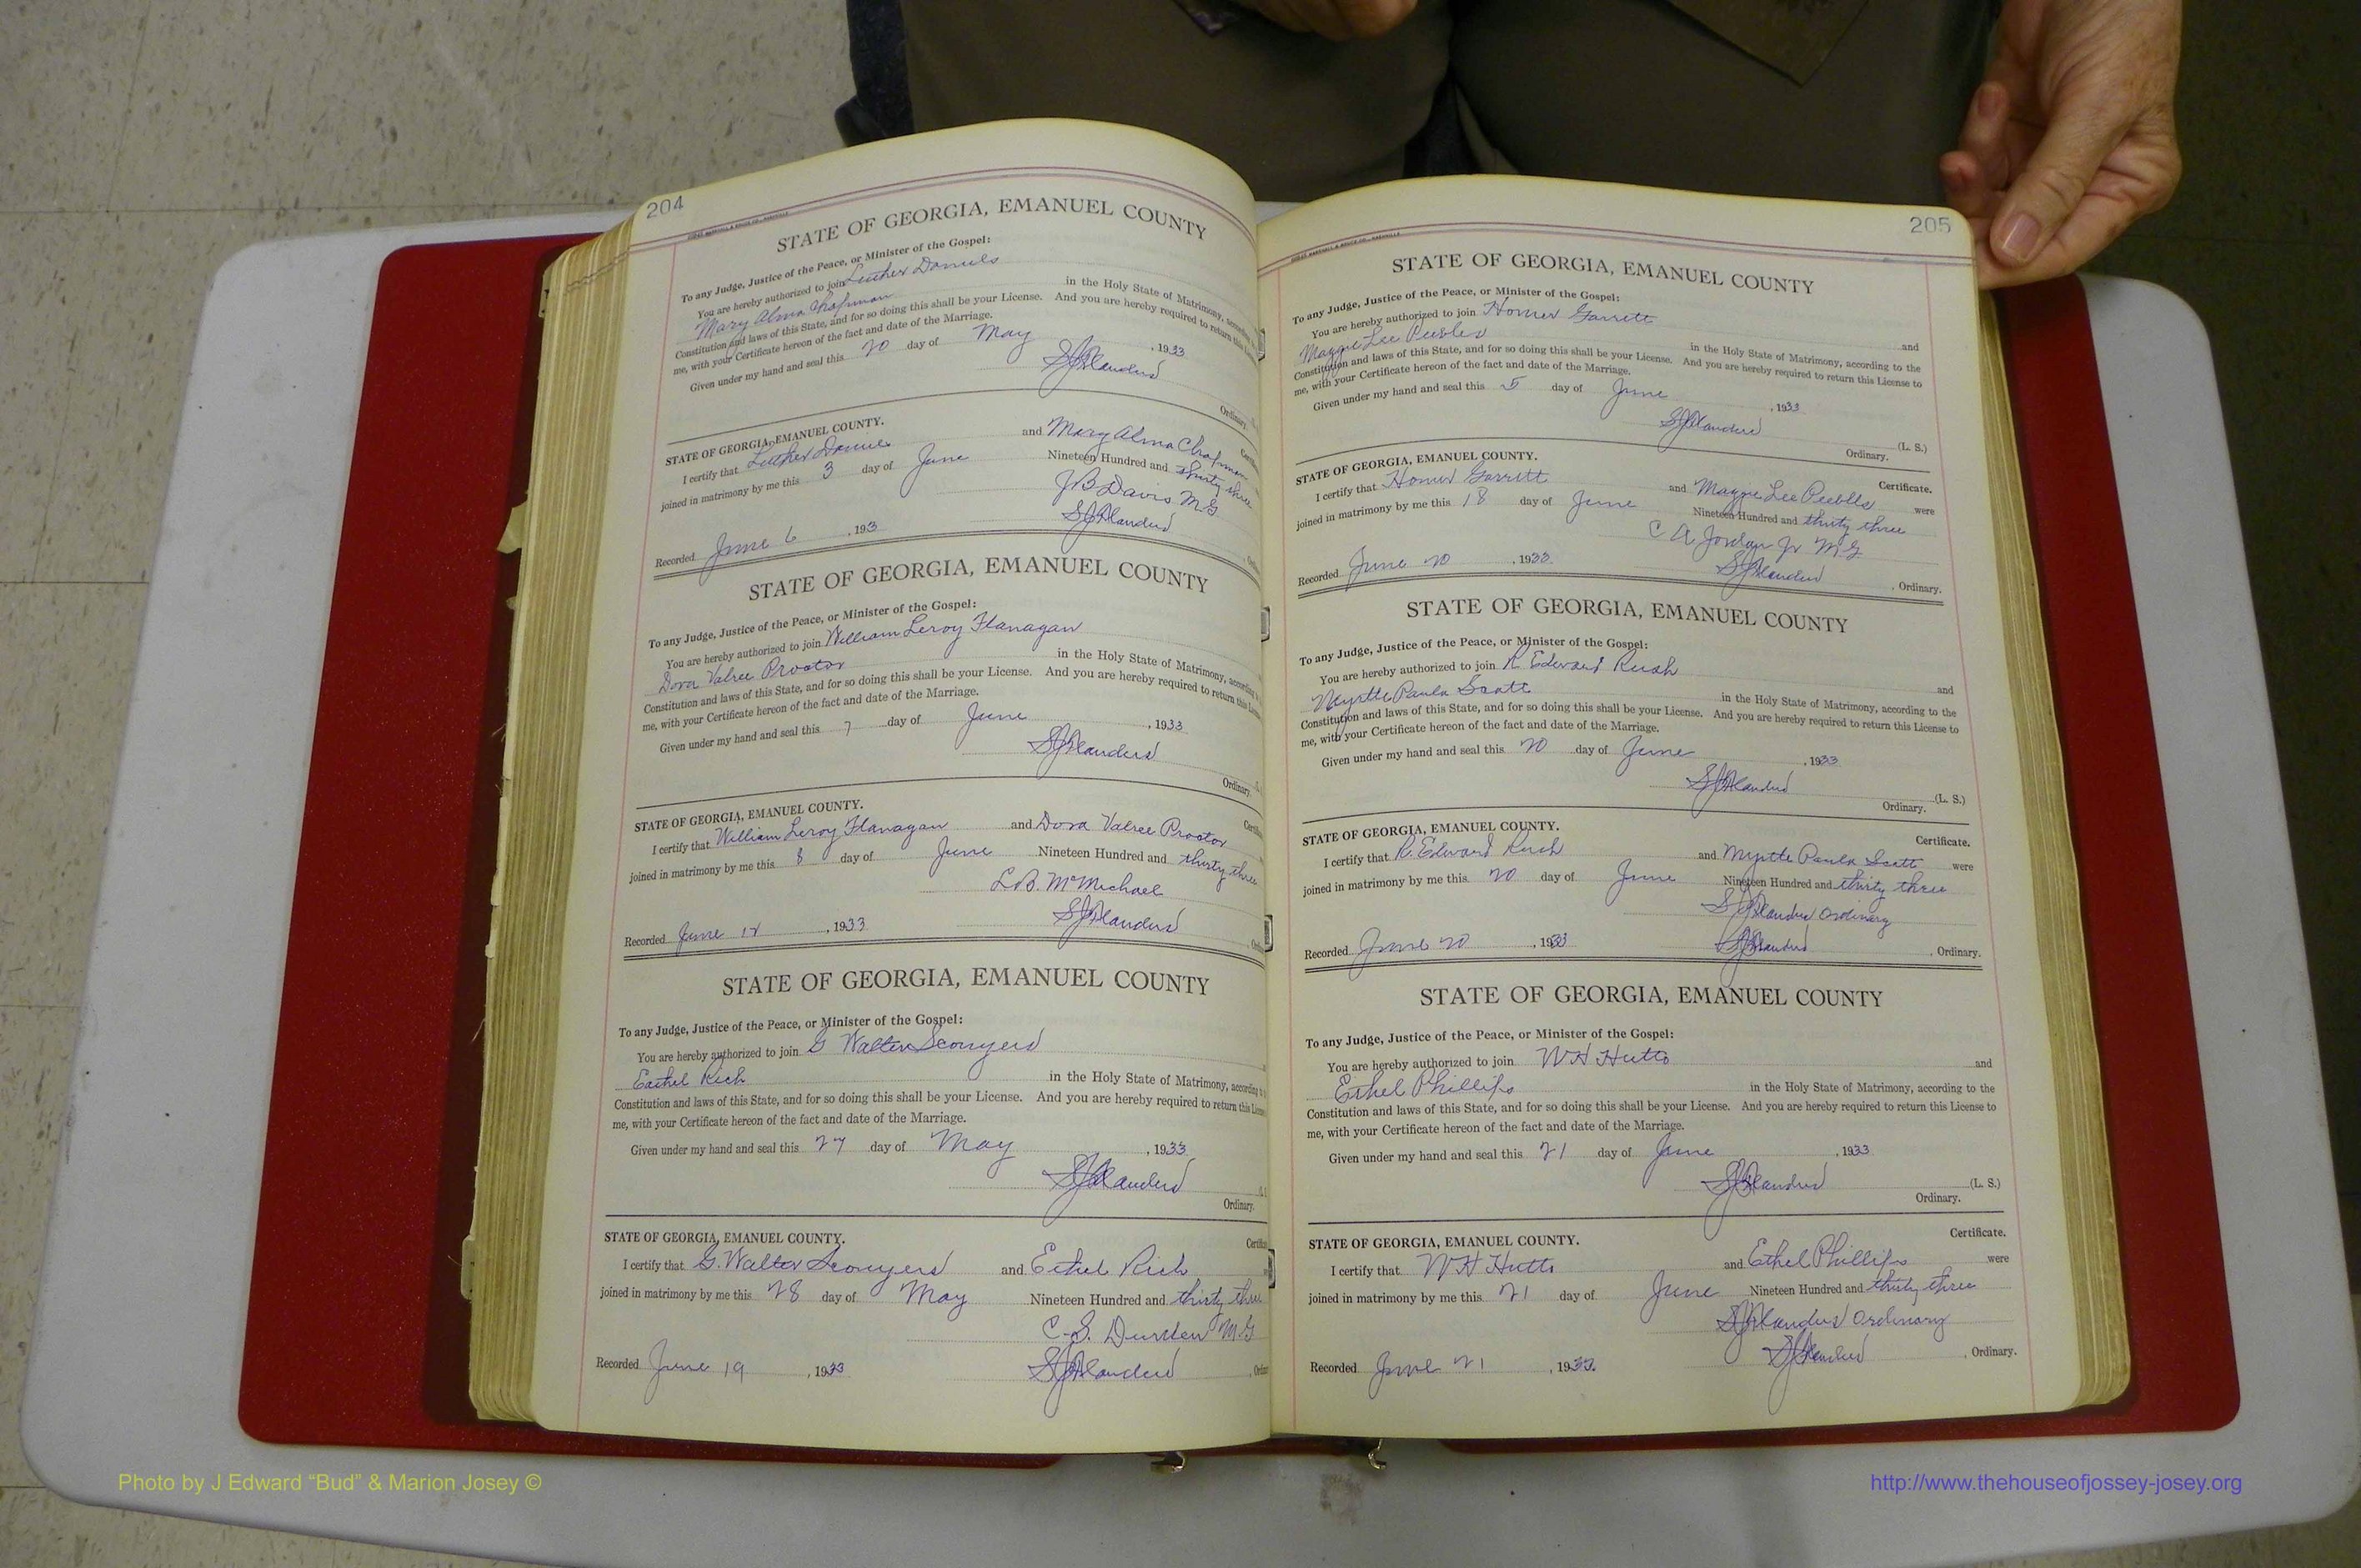 204
STATE OF GEORGIA, EMANUEL COUNTY
To any Judge, Justice of the Peace, or Minister of the Gospel:
You are hereby authorized to join Luther Daniels
Mary Alma Chapman in the Holy State of Matrimony,
Constitution and laws of this State, and for so doing this shall be your License. And you are hereby required to return this
me, with your Certificate hereon of the fact and date of the Marriage.
Given under my hand and seal this 20 day of May, 1933
Ordinary.
STATE OF GEORGIA, EMANUEL COUNTY.
I certify that Luther Daniels and Mary Alma Chapman
joined in matrimony by me this 3 day of June Nineteen Hundred and thirty three
J B Davis M.G.
Recorded June 6, 193
STATE OF GEORGIA, EMANUEL COUNTY
To any Judge, Justice of the Peace, or Minister of the Gospel:
You are hereby authorized to join William Leroy Flanagan
Dora Valree Proctor in the Holy State of Matrimony,
Constitution and laws of this State, and for so doing this shall be your License. And you are hereby required to return this
me, with your Certificate hereon of the fact and date of the Marriage.
Given under my hand and seal this 7 day of June, 1933
Ordinary.
STATE OF GEORGIA, EMANUEL COUNTY.
I certify that William Leroy Flanagan and Dora Valree Proctor
joined in matrimony by me this 8 day of June Nineteen Hundred and thirty three
L.B. McMichael
Recorded June 12, 1933
STATE OF GEORGIA, EMANUEL COUNTY
To any Judge, Justice of the Peace, or Minister of the Gospel:
You are hereby authorized to join G Walter Scouyers
Eathel Rich in the Holy State of Matrimony, according
Constitution and laws of this State, and for so doing this shall be your License. And you are hereby required to return this
me, with your Certificate hereon of the fact and date of the Marriage.
Given under my hand and seal this 27 day of May, 1933
Ordinary.
STATE OF GEORGIA, EMANUEL COUNTY.
I certify that G. Walter Scouyers and Eathel Rich
joined in matrimony by me this 28 day of May Nineteen Hundred and thirty three
C. S. Durden M.G.
Recorded June 19, 1933
205
STATE OF GEORGIA, EMANUEL COUNTY
To any Judge, Justice of the Peace, or Minister of the Gospel:
You are hereby authorized to join Homer Garrett and
Maggie Lee Peebles in the Holy State of Matrimony, according to the
Constitution and laws of this State, and for so doing this shall be your License. And you are hereby required to return this License to
me, with your Certificate hereon of the fact and date of the Marriage.
Given under my hand and seal this 5 day of June, 1933
S J Flanders (L. S.)
Ordinary.
STATE OF GEORGIA, EMANUEL COUNTY. Certificate.
I certify that Homer Garrett and Maggie Lee Peebles were
joined in matrimony by me this 18 day of June Nineteen Hundred and thirty three
C A Jordan Jr M.G.
Recorded June 20, 1933 S J Flanders, Ordinary.
STATE OF GEORGIA, EMANUEL COUNTY
To any Judge, Justice of the Peace, or Minister of the Gospel:
You are hereby authorized to join R Edward Rush and
Myrtle Paula Scott in the Holy State of Matrimony, according to the
Constitution and laws of this State, and for so doing this shall be your License. And you are hereby required to return this License to
me, with your Certificate hereon of the fact and date of the Marriage.
Given under my hand and seal this 20 day of June, 1933
S J Flanders (L. S.)
Ordinary.
STATE OF GEORGIA, EMANUEL COUNTY. Certificate.
I certify that R. Edward Rush and Myrtle Paula Scott were
joined in matrimony by me this 20 day of June Nineteen Hundred and thirty three
S J Flanders Ordinary
Recorded June 20, 1933 S J Flanders, Ordinary.
STATE OF GEORGIA, EMANUEL COUNTY
To any Judge, Justice of the Peace, or Minister of the Gospel:
You are hereby authorized to join W H Hutto and
Ethel Phillips in the Holy State of Matrimony, according to the
Constitution and laws of this State, and for so doing this shall be your License. And you are hereby required to return this License to
me, with your Certificate hereon of the fact and date of the Marriage.
Given under my hand and seal this 21 day of June, 1933
S J Flanders (L. S.)
Ordinary.
STATE OF GEORGIA, EMANUEL COUNTY. Certificate.
I certify that W H Hutto and Ethel Phillips were
joined in matrimony by me this 21 day of June Nineteen Hundred and thirty three
S J Flanders Ordinary
Recorded June 21, 1933. S J Flanders, Ordinary.
Photo by J Edward “Bud” & Marion Josey ©
http://www.thehouseofjossey-josey.org